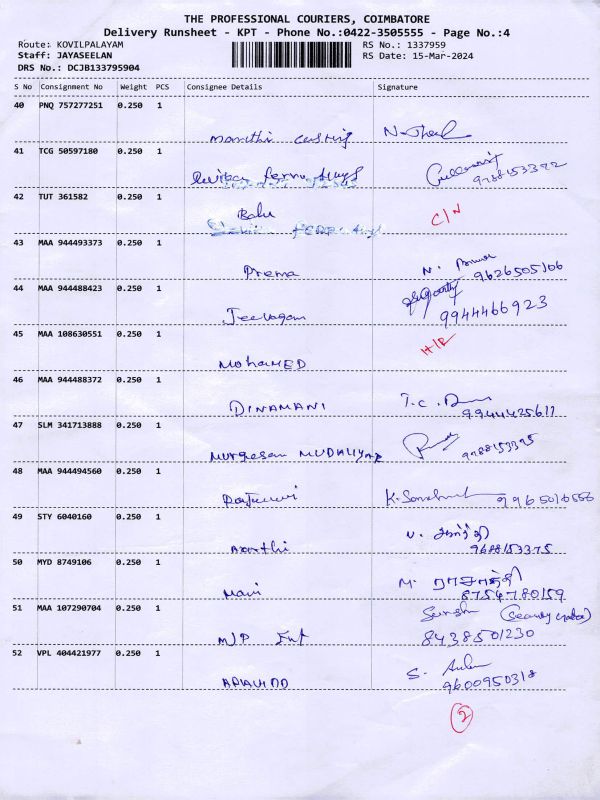 THE PROFESSIONAL COURIERS, COIMBATORE
Delivery Runsheet - KPT - Phone No.:0422-3505555 - Page No.:4
Route: KOVILPALAYAM RS No.: 1337959
Staff: JAYASEELAN RS Date: 15-Mar-2024
DRS No.: DCJB133795904
S No Consignment No Weight PCS Consignee Details Signature
40 PNQ 757277251 0.250 1
41 TCG 50597180 0.250 1
9788153392
42 TUT 361582 0.250 1
Babu C/N
43 MAA 944493373 0.250 1
Prema 9626505106
44 MAA 944488423 0.250 1
Jeevagan 9944466923
45 MAA 108630551 0.250 1
MOhAMED
46 MAA 944488372 0.250 1
DINAMANI T.C.
9944425611
47 SLM 341713888 0.250 1
Murgesan MUDALIYAR
48 MAA 944494560 0.250 1
49 STY 6040160 0.250 1
Aarthi 9688153375
50 MYD 8749106 0.250 1
Mani M. 8754780159
51 MAA 107290704 0.250 1
MJP 8438501230
52 VPL 404421977 0.250 1
ARAVIND S.
9600950318
2